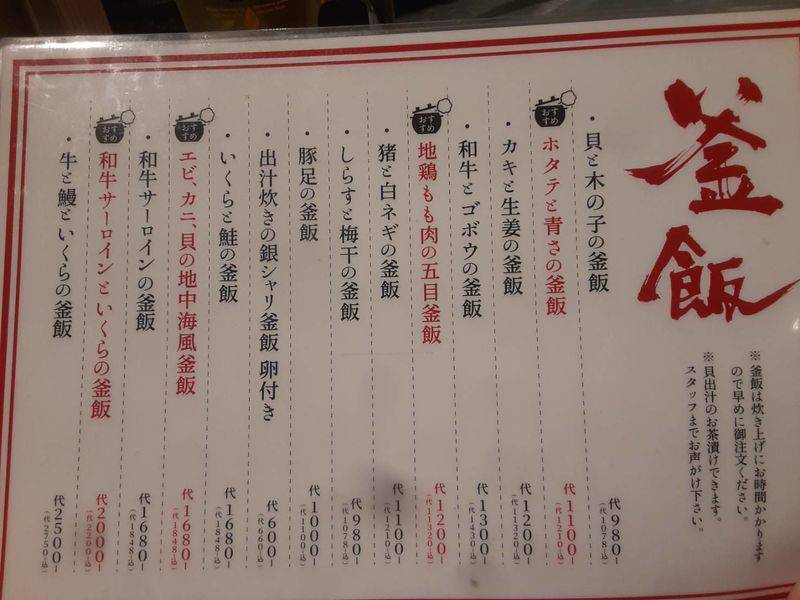 釜飯
※釜飯は炊き上げにお時間かかります
ので早めに御注文ください。
※貝出汁のお茶漬けできます。
スタッフまでお声がけ下さい。
・貝と木の子の釜飯
代 980-
(代1078-込)
おすすめ
ホタテと青さの釜飯
代 1100-
(代1210-込)
・カキと生姜の釜飯
代 1200-
(代11320-込)
・和牛とゴボウの釜飯
代 1300-
(代1430-込)
おすすめ
地鶏もも肉の五目釜飯
代 1200-
(代11320-込)
・猪と白ネギの釜飯
代 1100-
(代1210-込)
・しらすと梅干の釜飯
代 980-
(代1078-込)
・豚足の釜飯
代 1000-
(代1100-込)
・出汁炊きの銀シャリ釜飯 卵付き
代 600-
(代660-込)
・いくらと鮭の釜飯
代 1680-
(代1848-込)
おすすめ
エビ、カニ、貝の地中海風釜飯
代 1680-
(代1848-込)
・和牛サーロインの釜飯
代 1680-
(代1848-込)
おすすめ
和牛サーロインといくらの釜飯
代 2000-
(代2200-込)
・牛と鰻といくらの釜飯
代 2500-
(代2750-込)